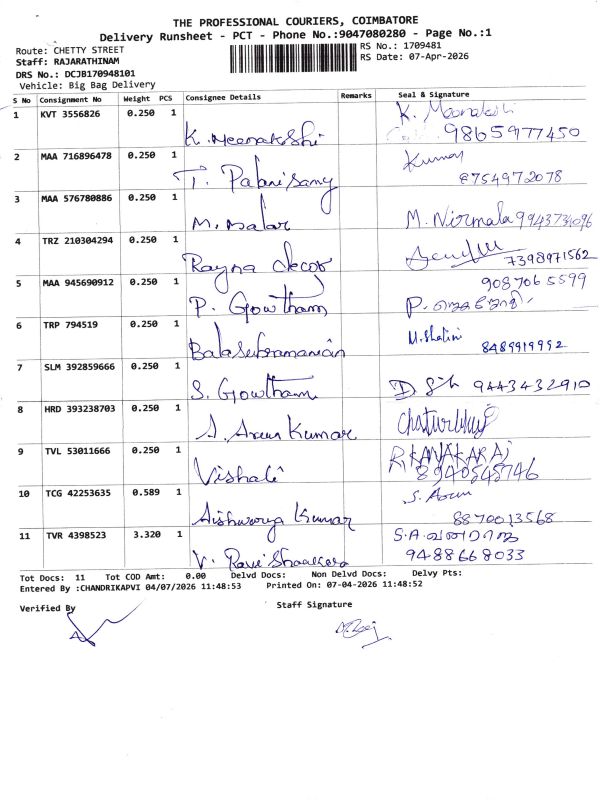 THE PROFESSIONAL COURIERS, COIMBATORE
Delivery Runsheet - PCT - Phone No.:9047080280 - Page No.:1
Route: CHETTY STREET
RS No.: 1709481
Staff: RAJARATHINAM
RS Date: 07-Apr-2026
DRS No.: DCJB170948101
Vehicle: Big Bag Delivery
S No Consignment No Weight PCS Consignee Details Remarks Seal & Signature
1 KVT 3556826 0.250 1 K. Meenakshi K. Meenakshi
9865977450
2 MAA 716896478 0.250 1 T. Palanisamy Kumar
8754972078
3 MAA 576780886 0.250 1 M. Malar M. Nirmala 9943734096
4 TRZ 210304294 0.250 1 Rayna decor
7398971562
5 MAA 945690912 0.250 1 P. Gowtham 9087065599
P.
6 TRP 794519 0.250 1 Balasubramanian M. Shalini
8489919992
7 SLM 392859666 0.250 1 S. Gowtham 9443432910
8 HRD 393238703 0.250 1 S. Arun Kumar
9 TVL 53011666 0.250 1 Vishali R. KANAKARAJ
8940545746
10 TCG 42253635 0.589 1 Aishwarya Kumar S. Arun
8870013568
11 TVR 4398523 3.320 1 V. Ravi S.A. வனராஜ
9488668033
Tot Docs: 11 Tot COD Amt: 0.00 Delvd Docs: Non Delvd Docs: Delvy Pts:
Entered By :CHANDRIKAPVI 04/07/2026 11:48:53 Printed On: 07-04-2026 11:48:52
Verified By
Staff Signature